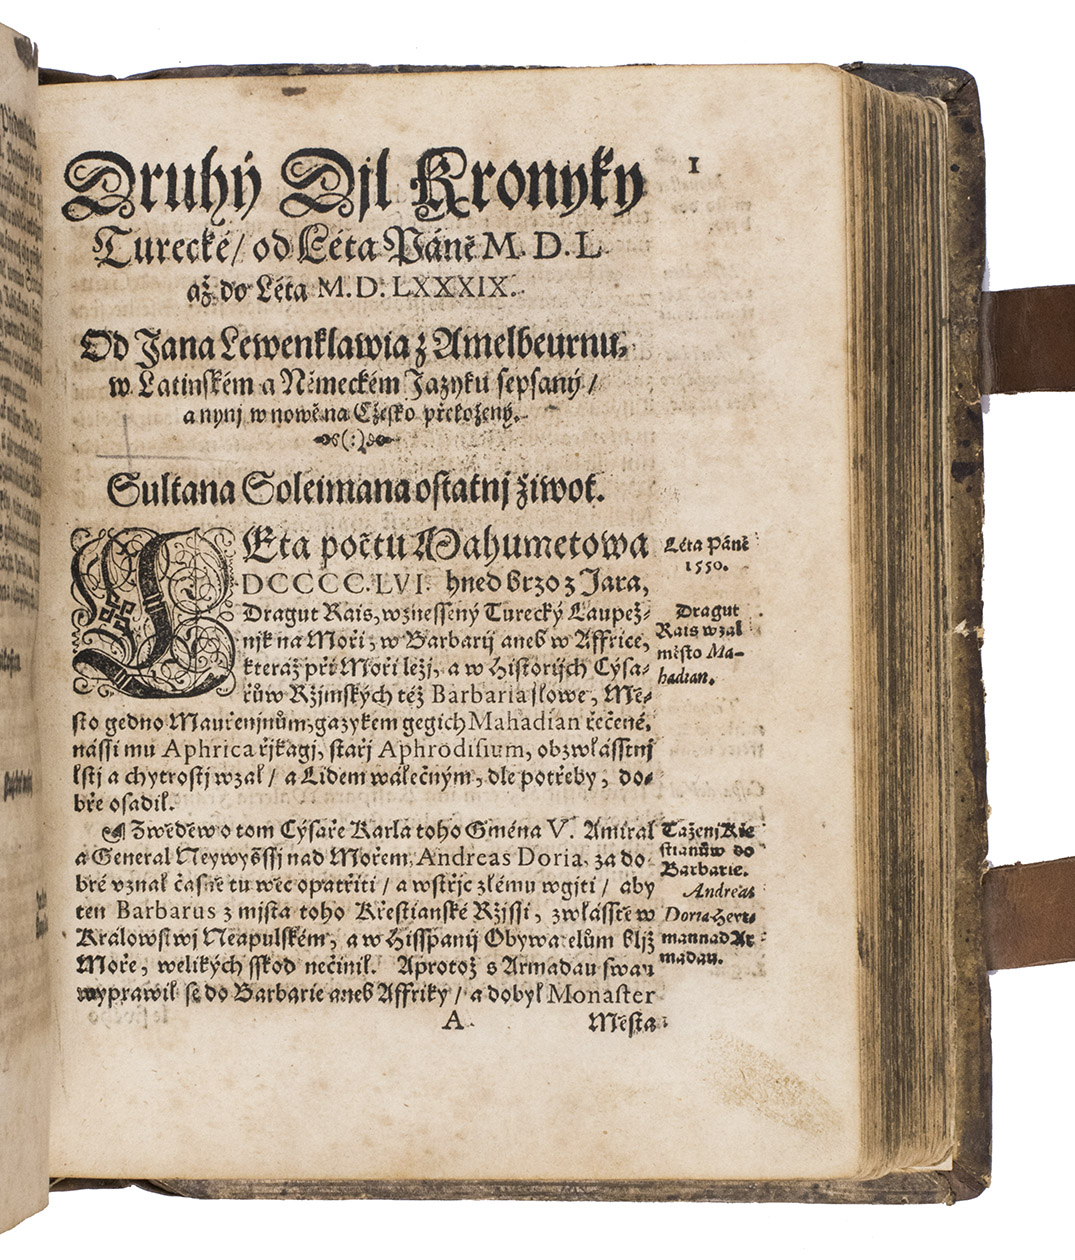 1
Druhý Djl Kronyky
Turecké/ od Léta Páně M. D. L.
až do Léta M. D. LXXXIX.
Od Jana Lewenklawia z Amelbeurnu,
w Latinském a Německém Jazyku sepsaný/
a nynj w nowě na Cžesko přeložený.
(:)
Sultana Soleimana ostatnj žiwot.
LEta počtu Mahumetowa
DCCCC.LVI. hned brzo z Jara,
Dragut Rais, wznessený Turecký Laupež-
njk na Moři, w Barbarij aneb w Affrice,
kteráž při Moři ležj, a w Historijch Cýsa-
řůw Ržjmských též Barbaria slowe, Mě-
sto gedno Mauřenjnům, gazykem gegich Mahadian řečené,
nássi mu Aphrica řjkagj, stařj Aphrodisium, obzwlásstnj
lstj a chytrostj wzal/ a Lidem wálečným, dle potřeby, do-
bře osadil.
Zwěděw o tom Cýsaře Karla toho Gména V. Amiral
a General Neywyšssj nad Mořem, Andreas Doria, za do-
bré vznal časně tu wěc opatřiti/ a wstřjc zlému wgjti/ aby
ten Barbarus z mjsta toho Křestianské Ržjssi, zwlásstě w
Králowstwj Neapulském, a w Hisspanij Obywatelům bljž
Moře, welikých sskod nečinil. Aprotož s Armadau swau
wyprawil se do Barbarie aneb Affriky/ a dobyl Monaster
A
Města
Léta Páně
1550.
Dragut
Rais wzal
město Ma-
hadian.
Taženj Kře
stianůw do
Barbarie.
Andreas
Doria Hert-
man nad Ar
madau.